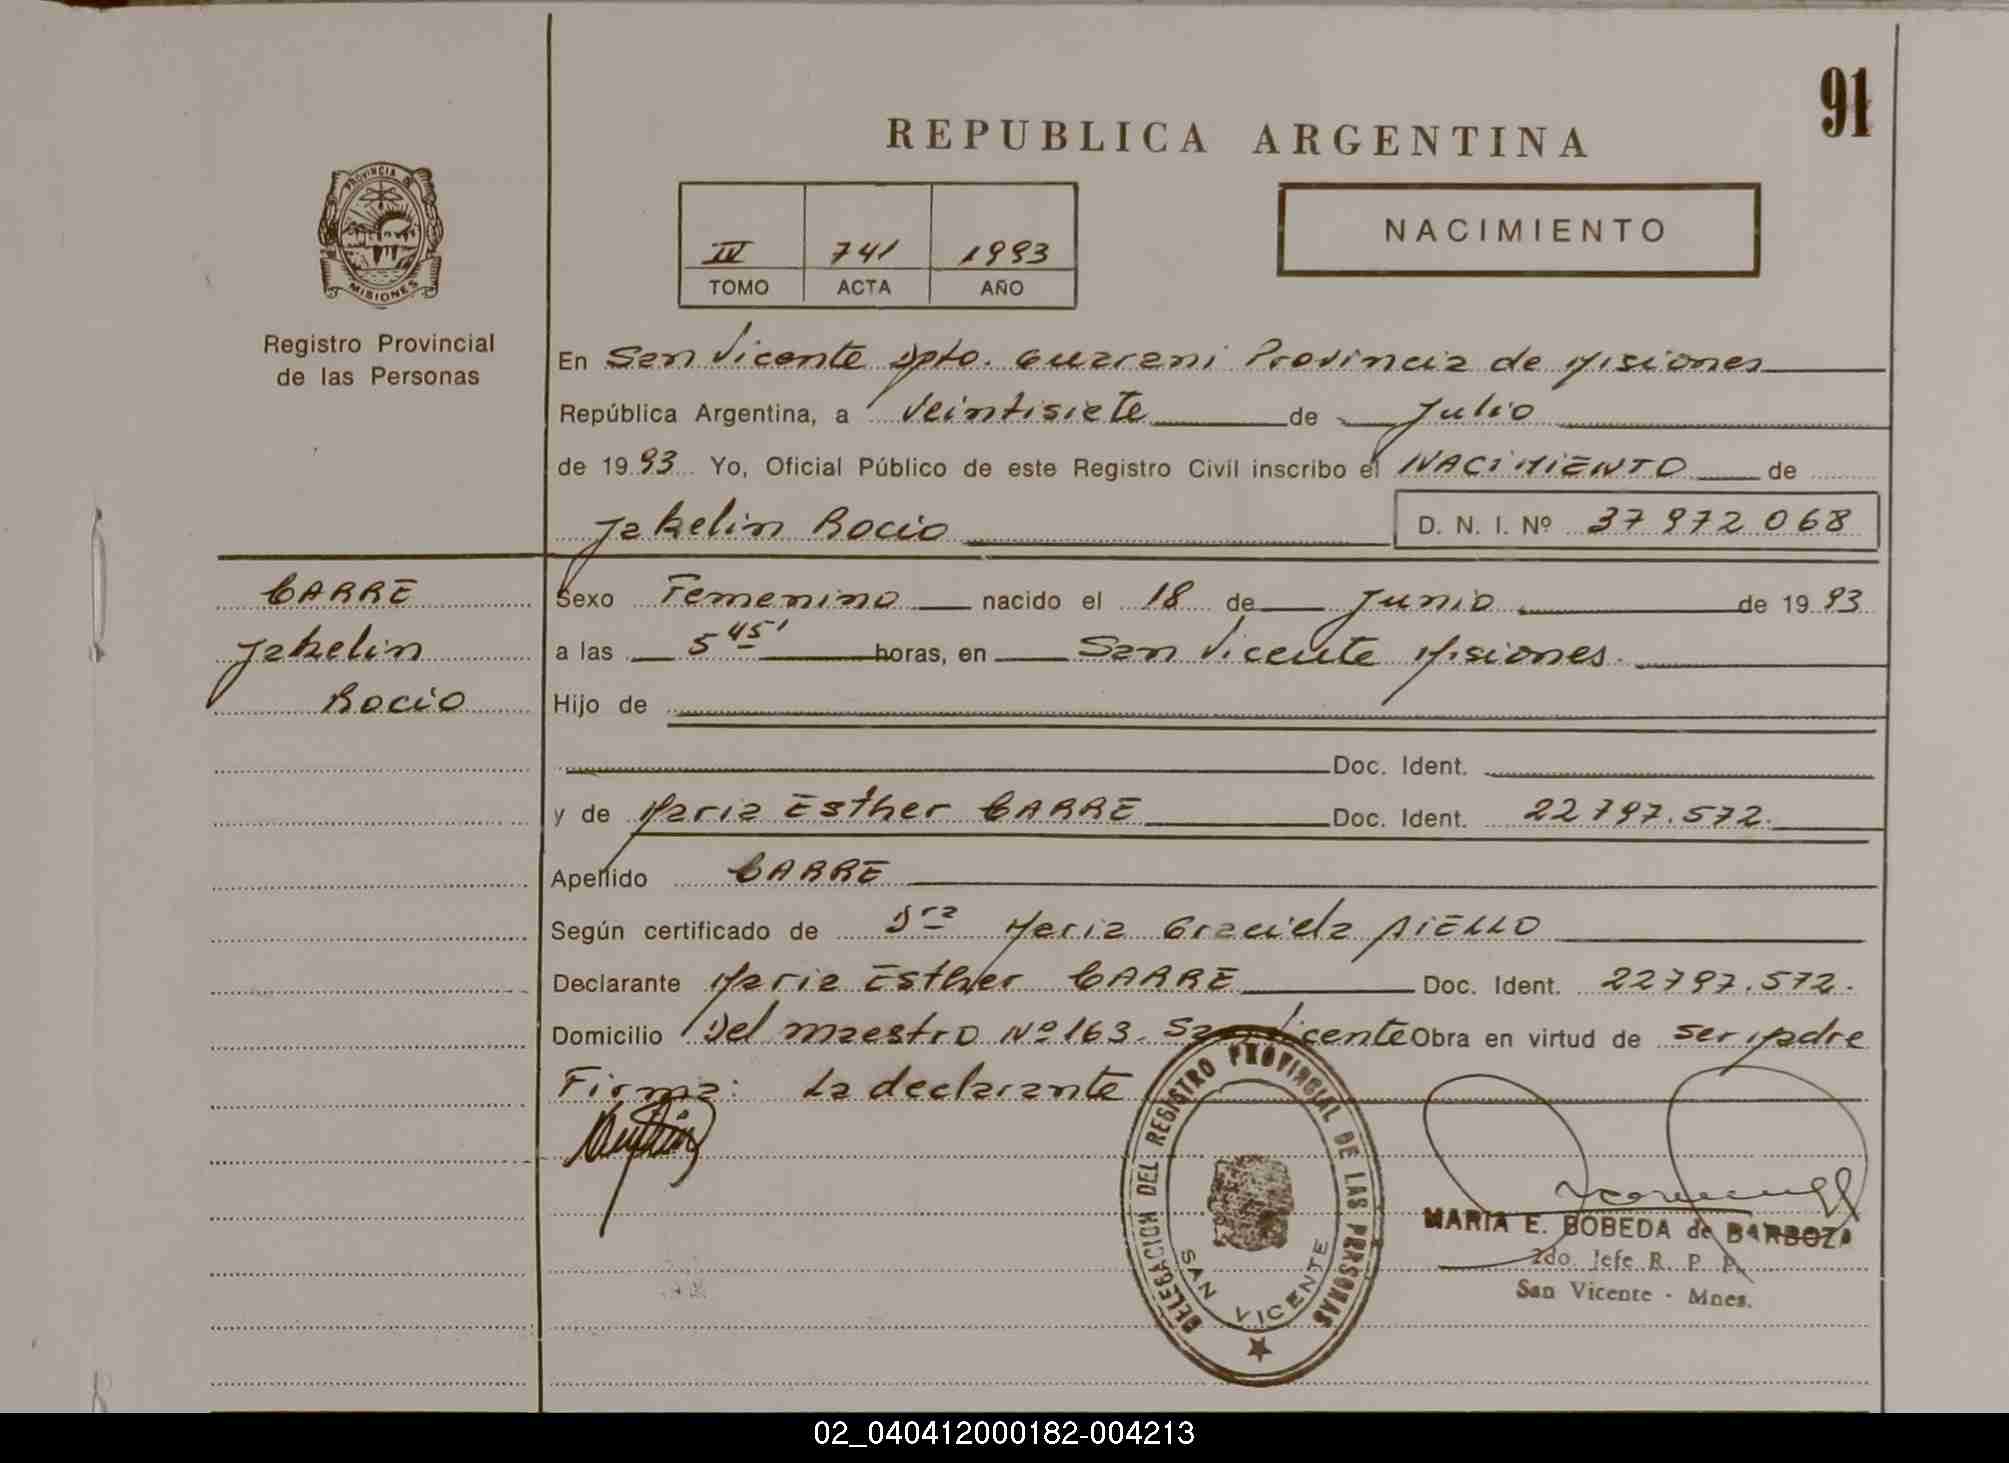 91
REPUBLICA ARGENTINA
PROVINCIA DE
MISIONES
IV 741 1993
TOMO ACTA AÑO
NACIMIENTO
Registro Provincial
de las Personas
En San Vicente Dpto. Guarani Provincia de Misiones
República Argentina, a Veintisiete de Julio
de 19 93 Yo, Oficial Público de este Registro Civil inscribo el NACIMIENTO de
Jakelin Rocio D. N. I. Nº 37 972 068
CARRE
Jakelin
Rocio
Sexo Femenino nacido el 18 de Junio de 19 93
a las 5 45' horas, en San Vicente Misiones.
Hijo de
Doc. Ident.
y de Maria Esther CARRE Doc. Ident. 22797.572.
Apellido CARRE
Según certificado de Dra Maria Graciela AiELLO
Declarante Maria Esther CARRE Doc. Ident. 22797.572.
Domicilio Del maestro Nº 163. San Vicente Obra en virtud de ser Madre
Firma: La declarante
DELEGACION DEL REGISTRO PROVINCIAL DE LAS PERSONAS
SAN VICENTE
MARIA E. BOBEDA de BARBOZA
2do. Jefe R. P. P.
San Vicente - Mnes.
02_040412000182-004213